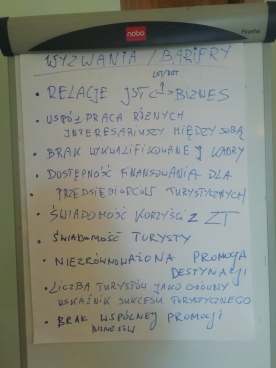 nobo
WYZWANIA / BARIERY
LOT/ROT
• RELACJE JST ↔ BIZNES
• WSPÓŁPRACA RÓŻNYCH
INTERESARIUSZY MIĘDZY SOBĄ
• BRAK WYKWALIFIKOWANEJ KADRY
• DOSTĘPNOŚĆ FINANSOWANIA DLA
PRZEDSIĘBIORCÓW TURYSTYCZNYCH
• ŚWIADOMOŚĆ KORZYŚCI Z ZT
• ŚWIADOMOŚĆ TURYSTY
• NIEZRÓWNOWAŻONA PROMOCJA
DESTYNACJI
• LICZBA TURYSTÓW JAKO GŁÓWNY
WSKAŹNIK SUKCESU TURYSTYCZNEGO
• BRAK WSPÓLNEJ PROMOCJI